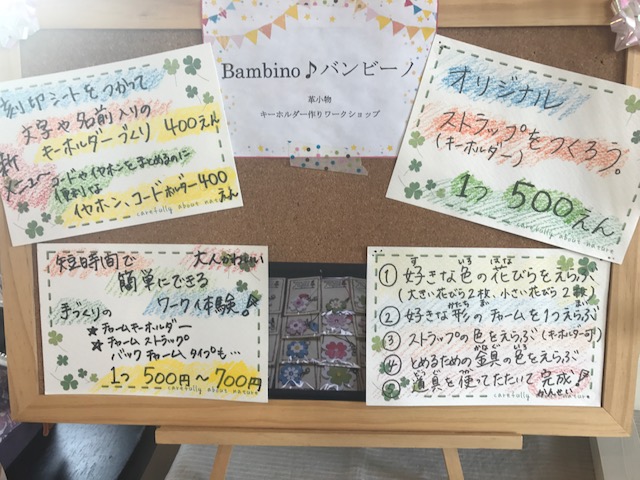 Bambino♪バンビーノ
革小物
キーホルダー作りワークショップ
刻印シートをつかって
文字や名前入りの
キーホルダーづくり 400えん
新メニュー
コードやイヤホンをまとめるのに
便利な
イヤホン、コードホルダー400
えん
carefully about nature
オリジナル
ストラップをつくろう。
(キーホルダー)
1つ 500えん
carefully about nature
短時間で 大人かわいい
簡単にできる
手づくりの ワーク体験♪
★チャームキーホルダー
★チャームストラップ
バックチャームタイプも…
1つ 500円〜700円
carefully about nature
① 好きな色の花びらをえらぶ
す いろ はな
(大きい花びら2枚、小さい花びら2枚)
② 好きな形のチャームを1つえらぶ
かたち
③ ストラップの色をえらぶ(キーホルダー可)
④ とめるための金具の色をえらぶ
かなぐ
⑤ 道具を使ってたたいて完成♪
どうぐ かんせい
carefully about nature